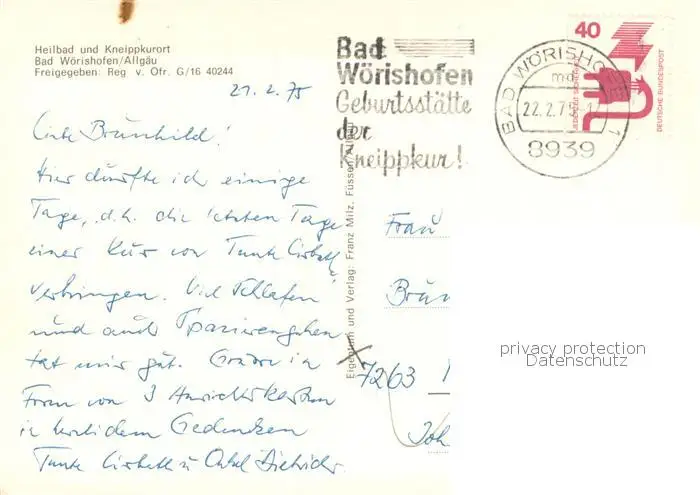 Heilbad und Kneippkurort
Bad Wörishofen/Allgäu
Freigegeben: Reg v. Ofr. G/16 40244
21.2.75
Liebe Brünhild!
Hier dürfte ich einige
Tage, d.h. die letzten Tage
einer Kur von Tante Lisbeth
verbringen. Viel Schlafen
und auch Spazierengehen
tat mir gut. in
Form von 3 Ansichtskarten
in herzlichem Gedenken
Tante Lisbeth u. Onkel
Bad
Wörishofen
Geburtsstätte
der
Kneippkur!
BAD WÖRISHOFEN 1
md
22.2.75
8939
40
JEDERZEIT SICHERHEIT
DEUTSCHE BUNDESPOST
Eigentum und Verlag: Franz Milz, Füssen
Frau
Brün
7263
Joh
privacy protection
Datenschutz